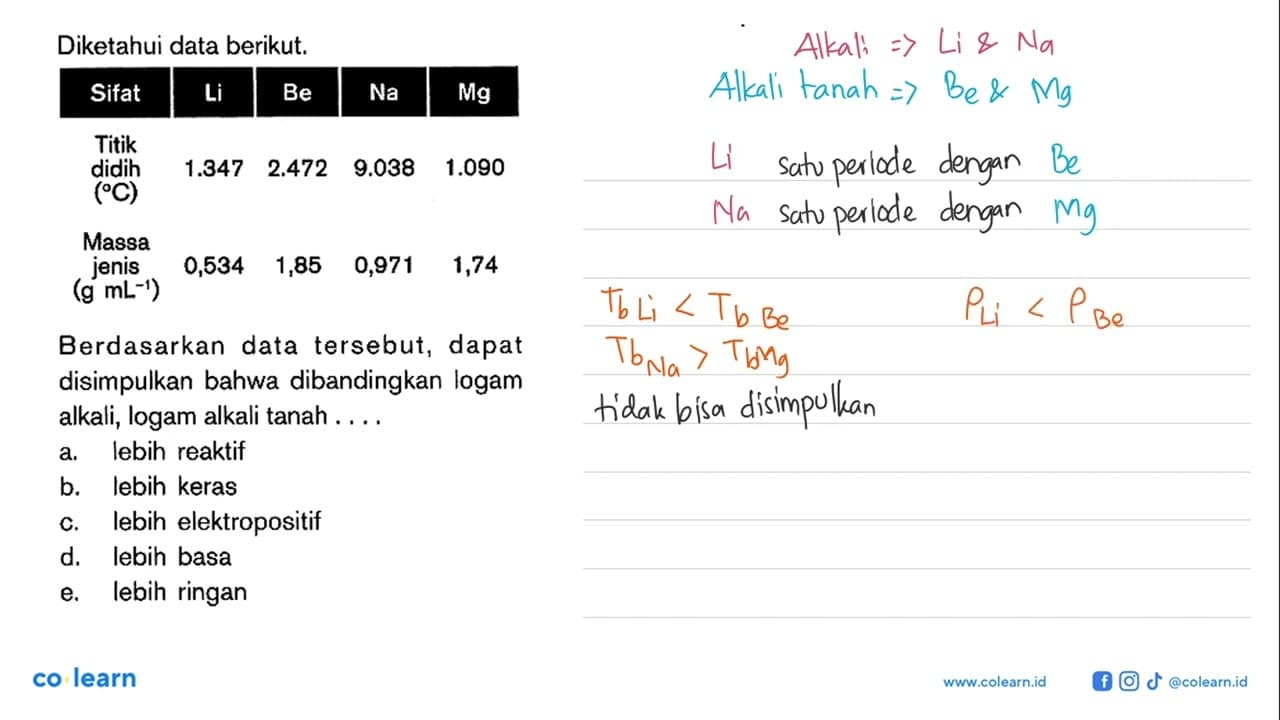 Diketahui data berikut.
Sifat Li Be Na Mg
Titik didih (°C) 1.347 2.472 9.038 1.090
Massa jenis (g mL⁻¹) 0,534 1,85 0,971 1,74
Berdasarkan data tersebut, dapat
disimpulkan bahwa dibandingkan logam
alkali, logam alkali tanah . . . .
a. lebih reaktif
b. lebih keras
c. lebih elektropositif
d. lebih basa
e. lebih ringan
Alkali => Li & Na
Alkali tanah => Be & Mg
Li satu periode dengan Be
Na satu periode dengan Mg
Tb Li < Tb Be ρLi < ρBe
TbNa > TbMg
tidak bisa disimpulkan
co learn
www.colearn.id @colearn.id